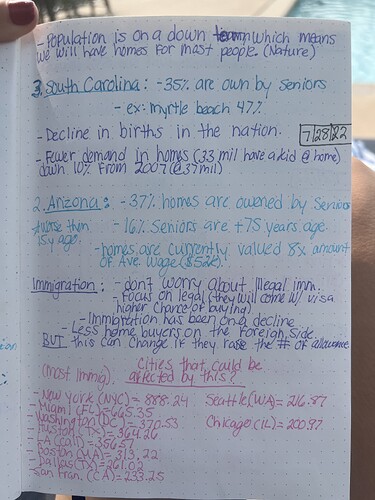 - Population is on a down which means
we will have homes for most people. (Nature)
3. South Carolina: - 35% are own by seniors
- ex: myrtle beach 47%
- Decline in births in the nation.
7/28/22
- Fewer demand in homes (33 mil have a kid @ home)
down 10% from 2007 (@37mil)
2. Arizona: - 37% homes are owned by seniors
#worse then
15y ago.
- 16% seniors are +75 years age.
- homes are currently valued 8x amount
of Ave. wage ($52k).
Immigration: - don't worry about Illegal imm.
- Focus on legal (they will come w/ visa
higher chance of buying)
- Immigration has been on a decline
- Less home buyers on the foreign side.
BUT this can change if they raise the # of allowance
(most immig.)
Cities that could be
affected by this?
- New York (NYC) = 888.24
- Miami (FL) = 665.35
- Washington (DC) = 370.53
- Huston (TX) = 364.26
- LA (Cali) = 356.57
- Boston (WA) = 313.22
- Dallas (TX) = 261.02
- San Fran. (CA) = 233.25
Seattle (WA) = 216.87
Chicago (IL) = 200.97